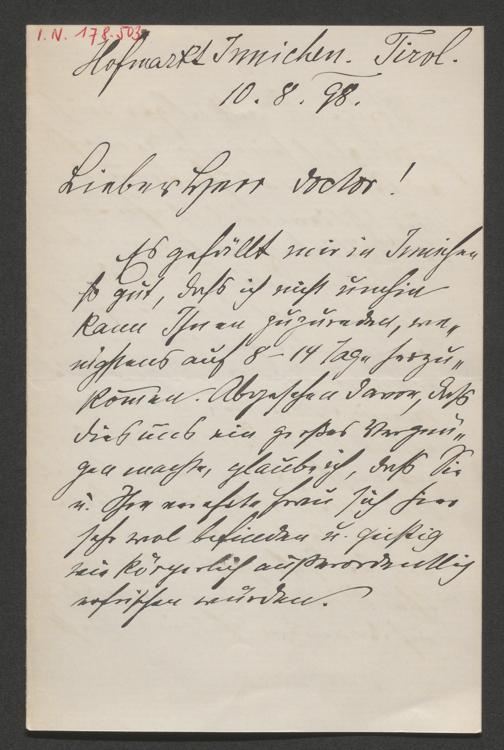 I. N. 178.503
Hofmarkt Innichen. Tirol.
10. 8. 98.
Lieber Herr Doctor!
Es gefällt mir in Innichen
so gut, daß ich nicht umhin
kann Ihnen zuzureden, we„
nigstens auf 8–14 Tage herzu„
kom̄en. Abgesehen davon, daß
dies uns ein großes Vergnü„
gen machte, glaube ich, daß Sie
u. Ihre verehrte Frau sich hier
sehr wol befinden u. geistig
wie körperlich außerordentlich
erfrischen würden.